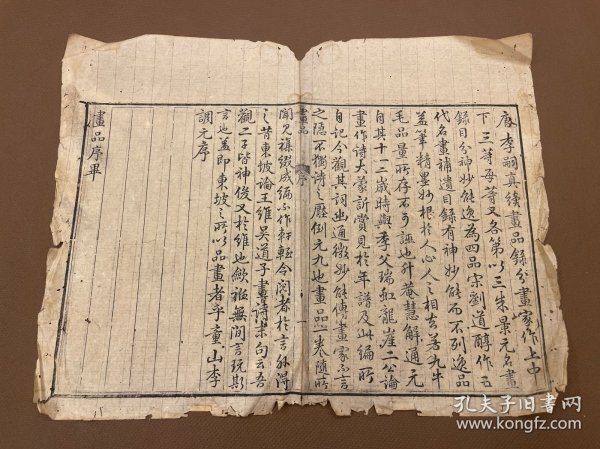 唐李嗣真續畫品錄分畫家作上中
下三等每等又各第以三朱景元名畫
錄目分神妙能逸為四品宋劉道醇作五
代名畫補遺目錄有神妙能而不列逸品
蓋筆精墨妙根於人心人之相去若九牛
毛品量所存不可誣也升菴慧解通元
自其十一二歲時與季父瑞虹龍崖二公論
畫作詩大蒙訢賞見於年譜及此編所
自記今觀其詞幽通微妙能傳畫家不言
之隱不獨詩之壓倒元九也畫品一卷隨所
畫品 序
聞見襍綴成編不作軒輊令閱者於言外得
之昔東坡論王維吳道子畫詩末句云吾
觀二子皆神俊又於維也歛袵無間言玩影
言也蓋即東坡之所以品畫者乎童山李
調元序
畫品序畢
孔夫子旧书网
book.kongfz.com